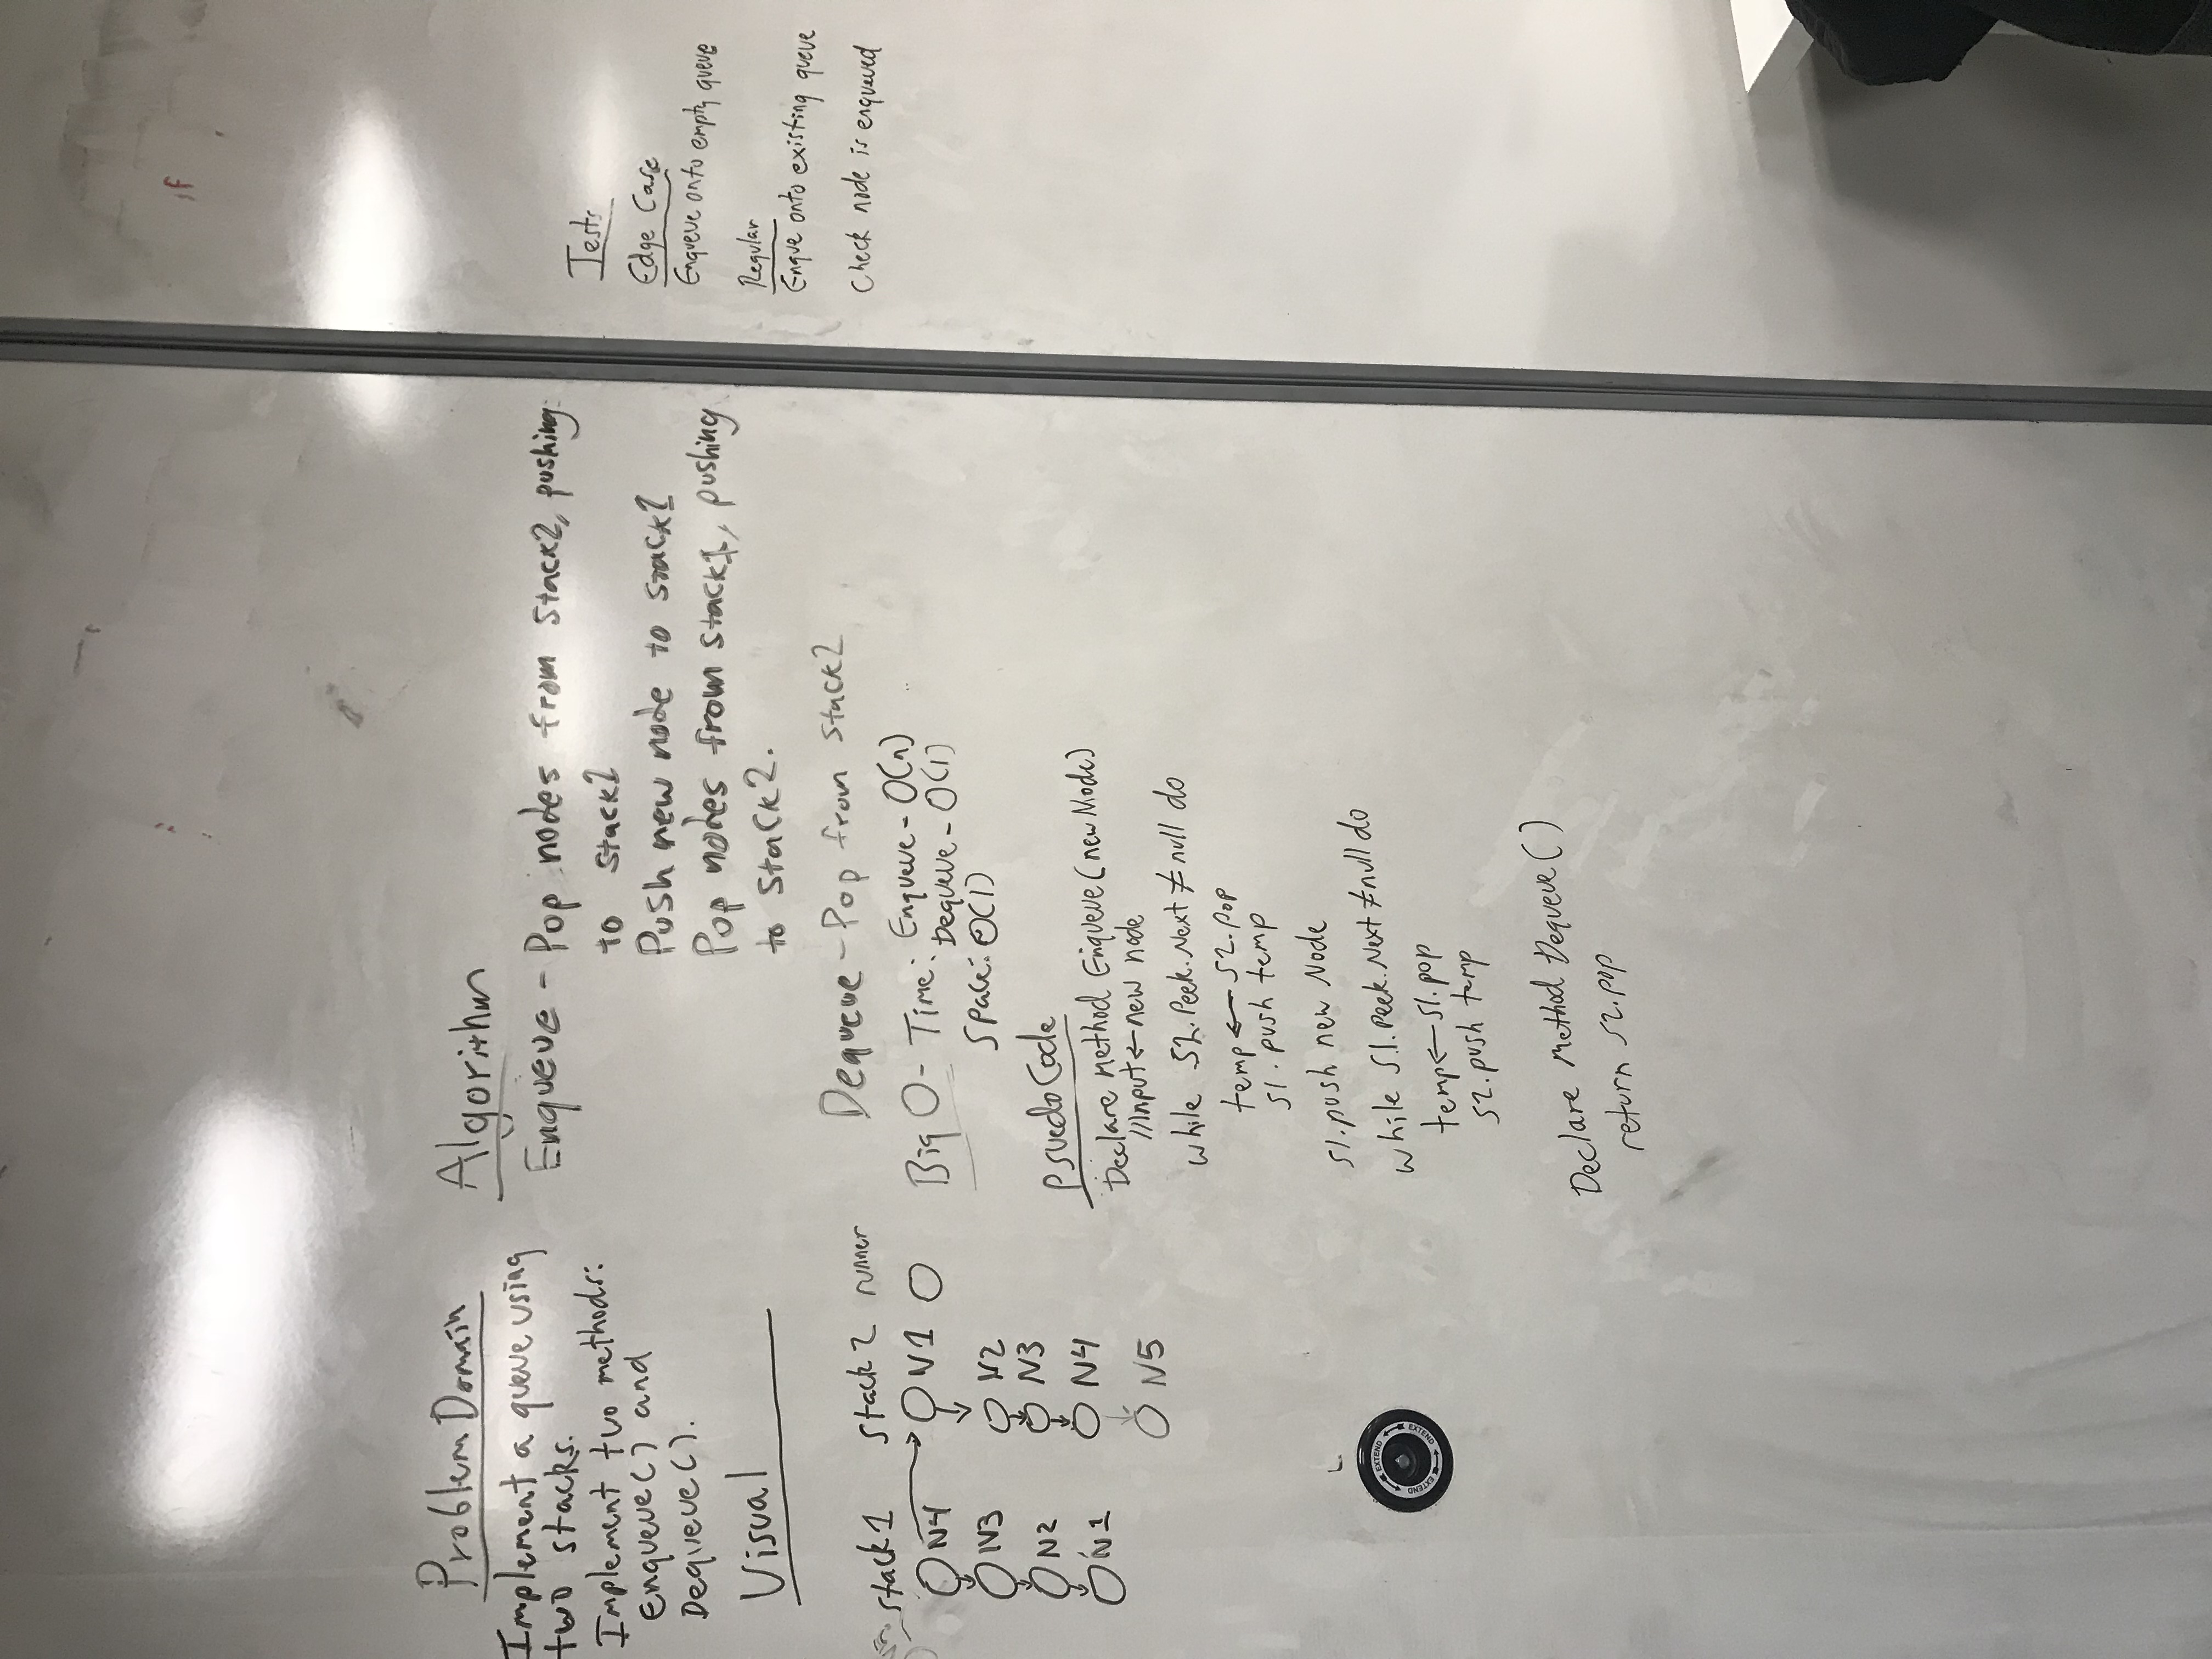 if
Problem Domain
Implement a queue using
two stacks.
Implement two methods:
Enqueue() and
Dequeue().
Visual
stack1
stack2
runner
N4
N3
N2
N1
N1
N2
N3
N4
N5
EXTEND
EXTEND
EXTEND
Algorithm
Enqueue - Pop nodes from Stack2, pushing
to Stack1
Push new node to stack1
Pop nodes from stack1, pushing
to stack2.
Dequeue - Pop from stack2
Big O - Time: Enqueue - O(n)
Dequeue - O(1)
Space: O(1)
PsuedoCode
Declare Method Enqueue(newNode)
//Input ← new node
while S2.Peek.Next ≠ null do
temp ← S2.pop
S1.push temp
S1.push new Node
while S1.Peek.Next ≠ null do
temp ← S1.pop
S2.push temp
Declare Method Dequeue()
return S2.pop
Tests
Edge Case
Enqueue onto empty queue
Regular
Enque onto existing queue
Check node is enqueued